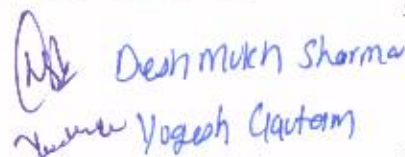 Deshmukh Sharma
Yogesh Gautam